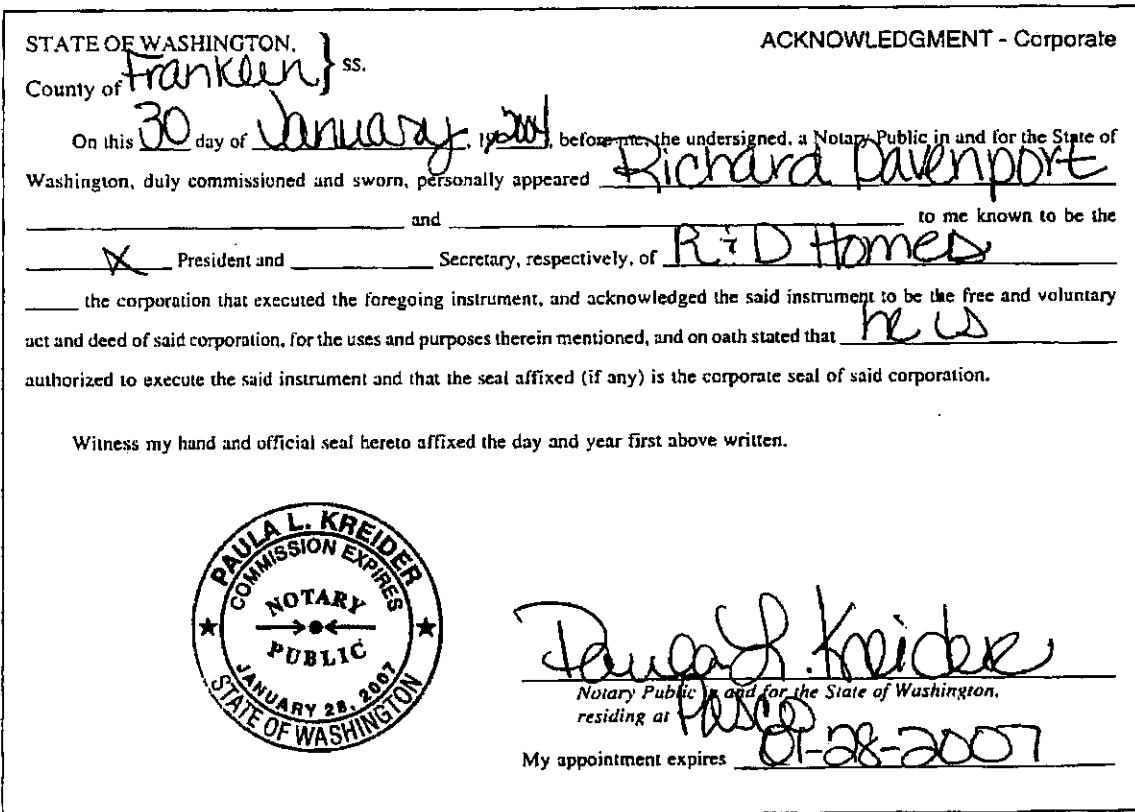 STATE OF WASHINGTON,
ACKNOWLEDGMENT - Corporate
County of Franklin } ss.
On this 30 day of January, 19 2004, before me, the undersigned, a Notary Public in and for the State of
Washington, duly commissioned and sworn, personally appeared Richard Davenport
and to me known to be the
X President and Secretary, respectively, of R & D Homes
the corporation that executed the foregoing instrument, and acknowledged the said instrument to be the free and voluntary
act and deed of said corporation, for the uses and purposes therein mentioned, and on oath stated that he is
authorized to execute the said instrument and that the seal affixed (if any) is the corporate seal of said corporation.
Witness my hand and official seal hereto affixed the day and year first above written.
PAULA L. KREIDER
COMMISSION EXPIRES
NOTARY
PUBLIC
JANUARY 28, 2007
STATE OF WASHINGTON
Paula L. Kreider
Notary Public in and for the State of Washington,
residing at Pasco
My appointment expires 01-28-2007